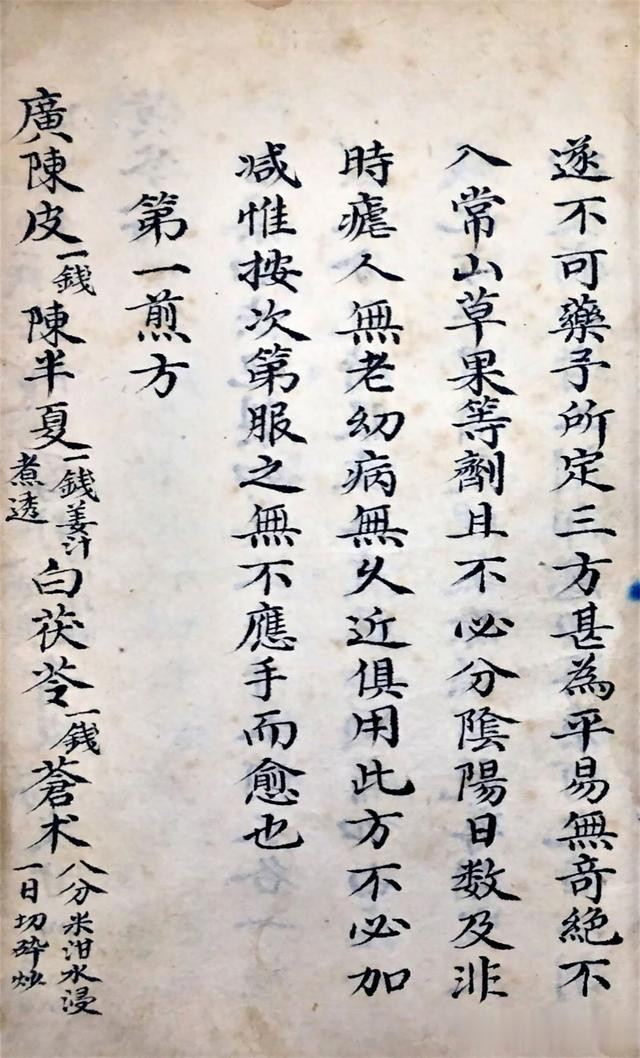 遂不可藥予所定三方甚為平易無奇絕不
入常山草果等劑且不必分陰陽日数及非
時瘧人無老幼病無久近俱用此方不必加
减惟按次第服之無不應手而愈也
第一煎方
廣陳皮一錢陳半夏一錢姜汁煮透白茯苓一錢蒼术八分米泔水浸一日切碎炒